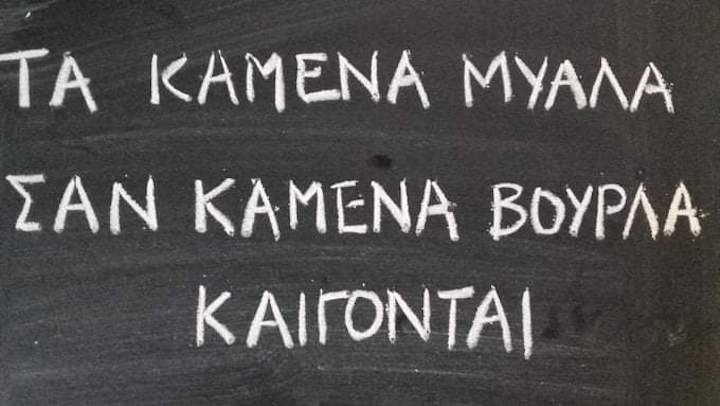 ΤΑ ΚΑΜΕΝΑ ΜΥΑΛΑ
ΣΑΝ ΚΑΜΕΝΑ ΒΟΥΡΛΑ
ΚΑΙΓΟΝΤΑΙ